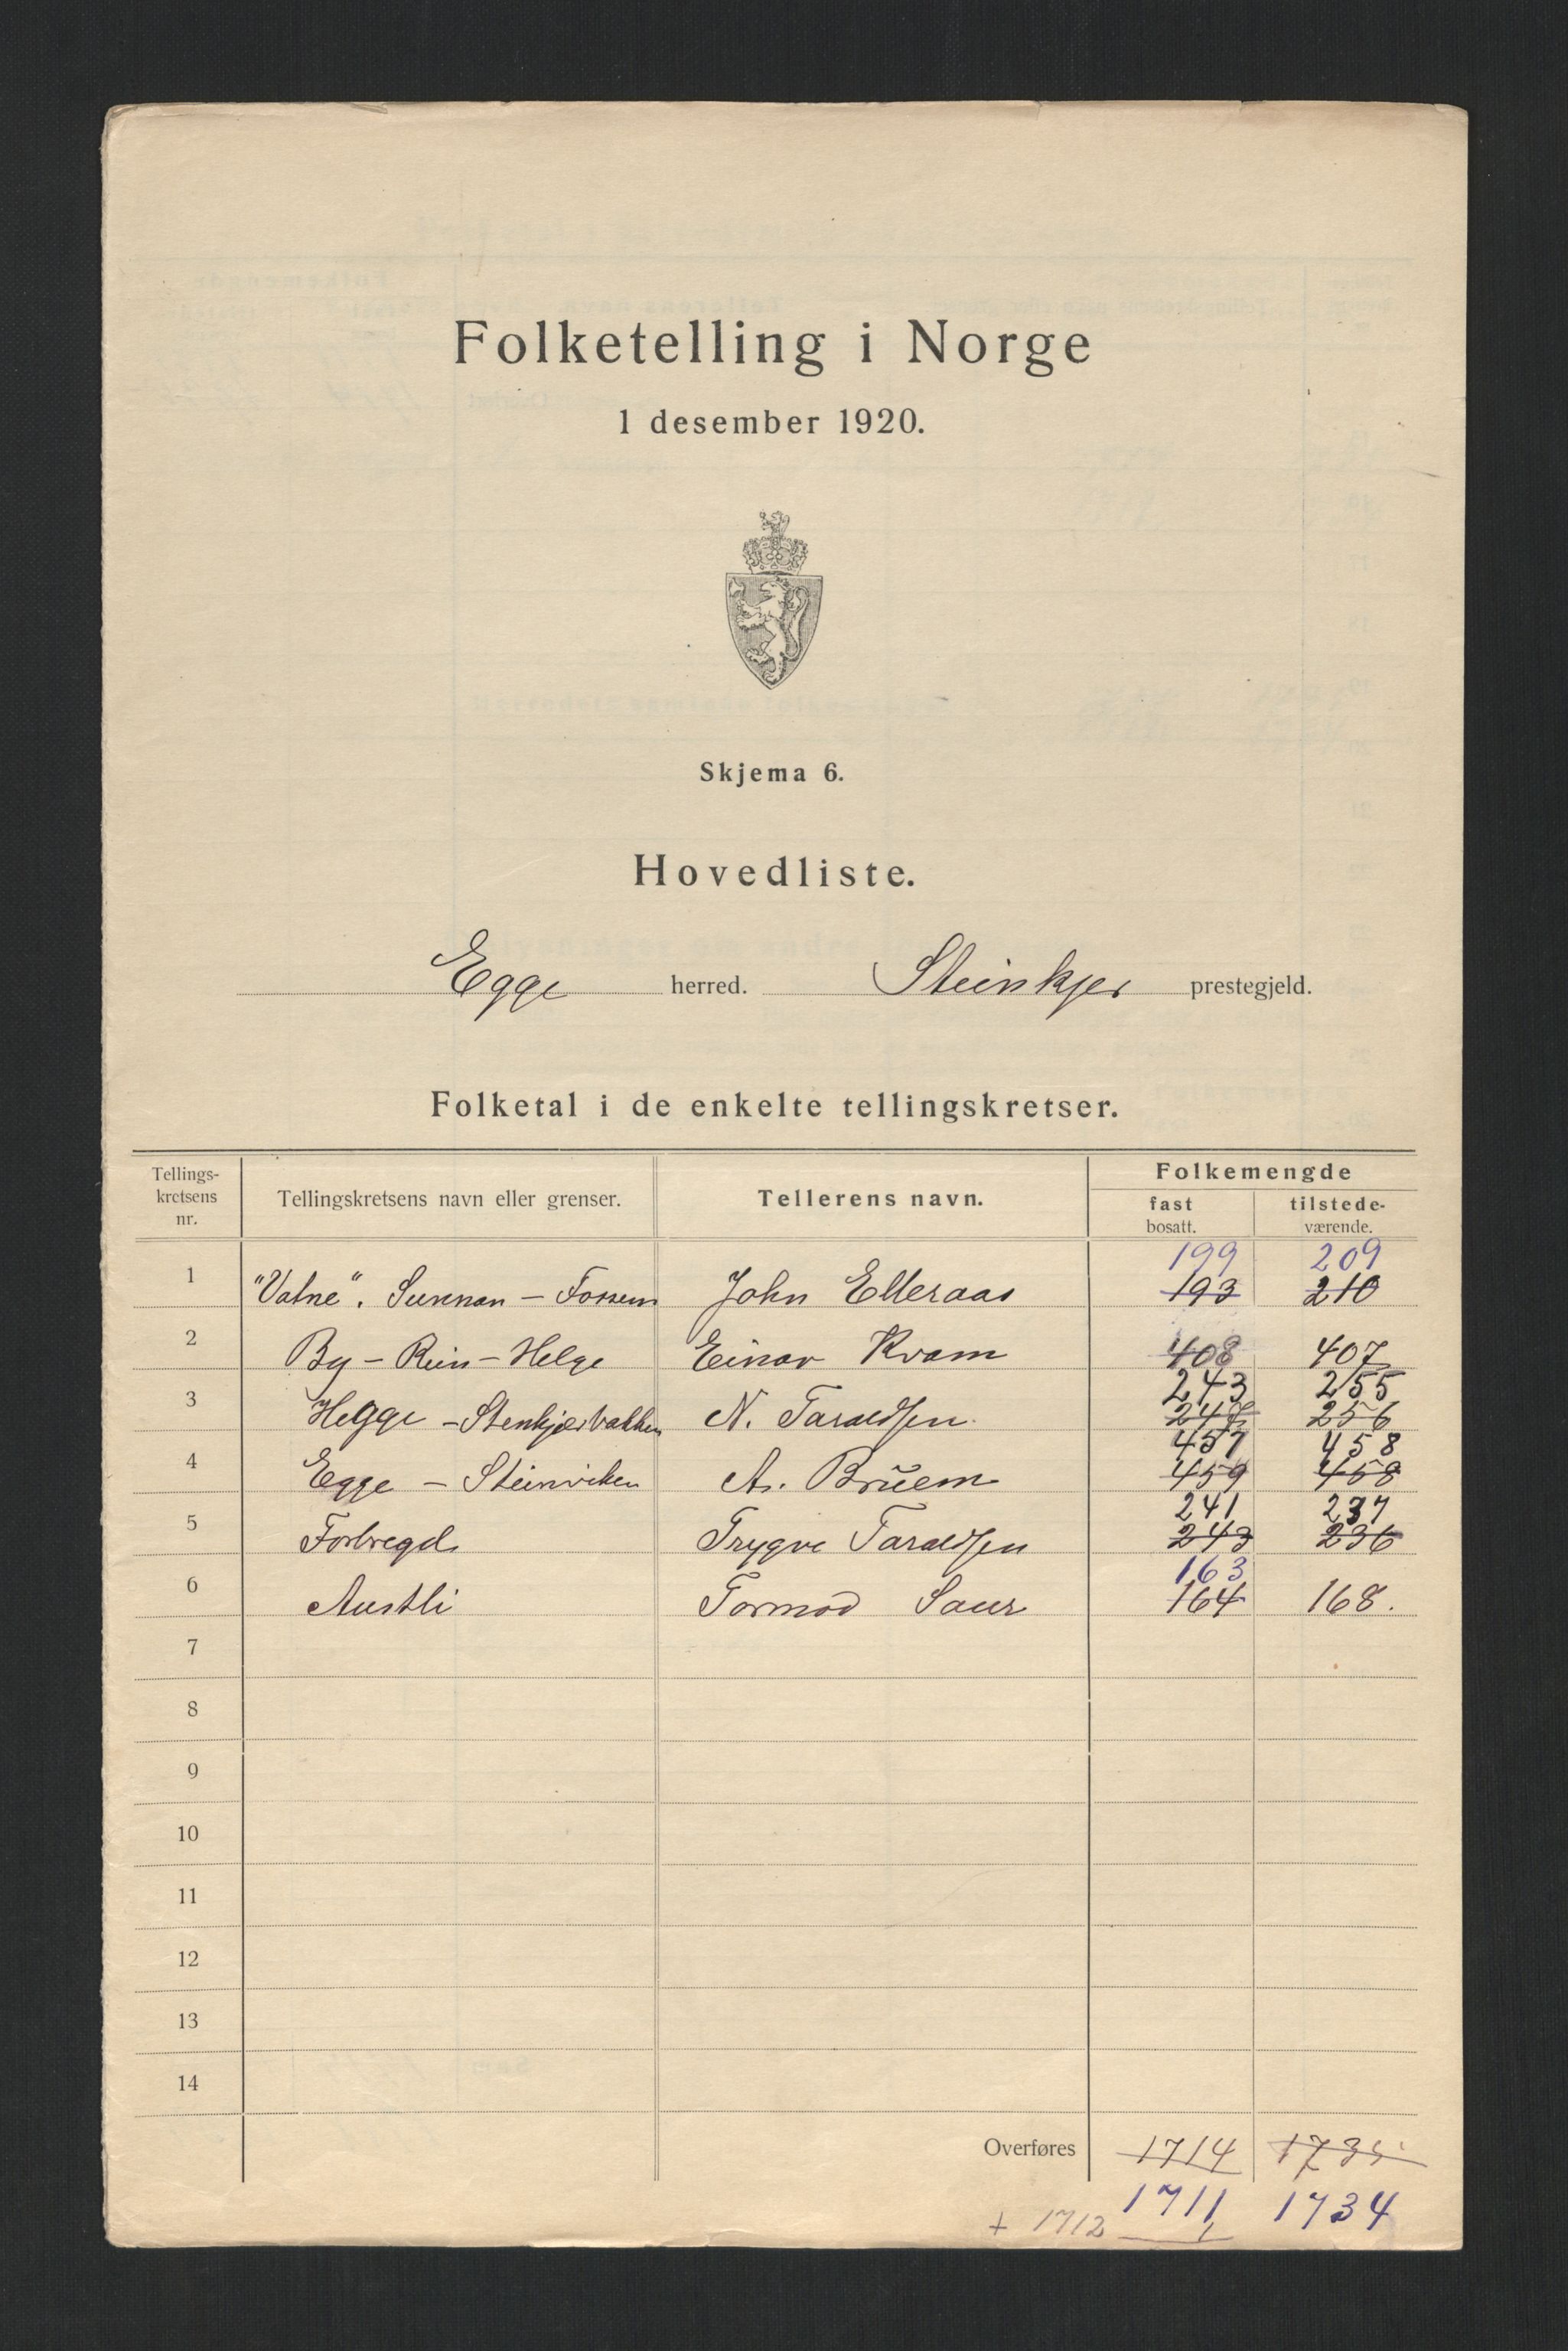 Folketelling i Norge
1 desember 1920.
Skjema 6.
Hovedliste.
Egge herred. Steinkjer prestegjeld.
Folketal i de enkelte tellingskretser.
Tellings-kretsens nr. Tellingskretsens navn eller grenser. Tellerens navn. Folkemengde
fast bosatt. tilstede-værende.
199 209
1 "Vatne". Sunnan - Fossem John Elleraas 193 210
2 By - Rein - Helge Einar Kvam 408 407
243 255
3 Hegge - Stenkjærbakken N. Taraldsen 256
457 458
4 Egge - Steinviken A. Brüem 459 458
241 237
5 Forbregd Trygve Taraldsen 243 236
163
6 Austli Tormod Saur 164 168.
7
8
9
10
11
12
13
14
Overføres 1714 1735
1711 1734
+ 1712 1